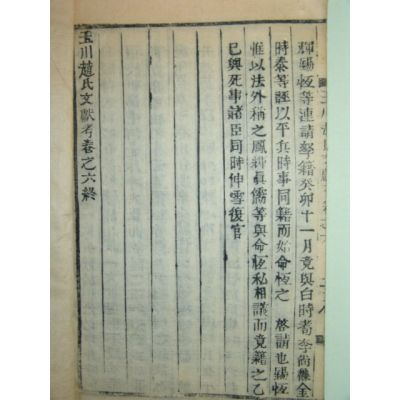 輝錫恆等連請孥籍癸卯十一月竟與白時耉李尚𣞗金
時泰等誣以平兵時事同籍而始命恆之 啓請也錫恆
惟以法外稱之鳳輝眞儒等與命恆私相議而竟籍之乙
巳與死事諸臣同時伸雪復官
玉川趙氏文獻考卷之六終